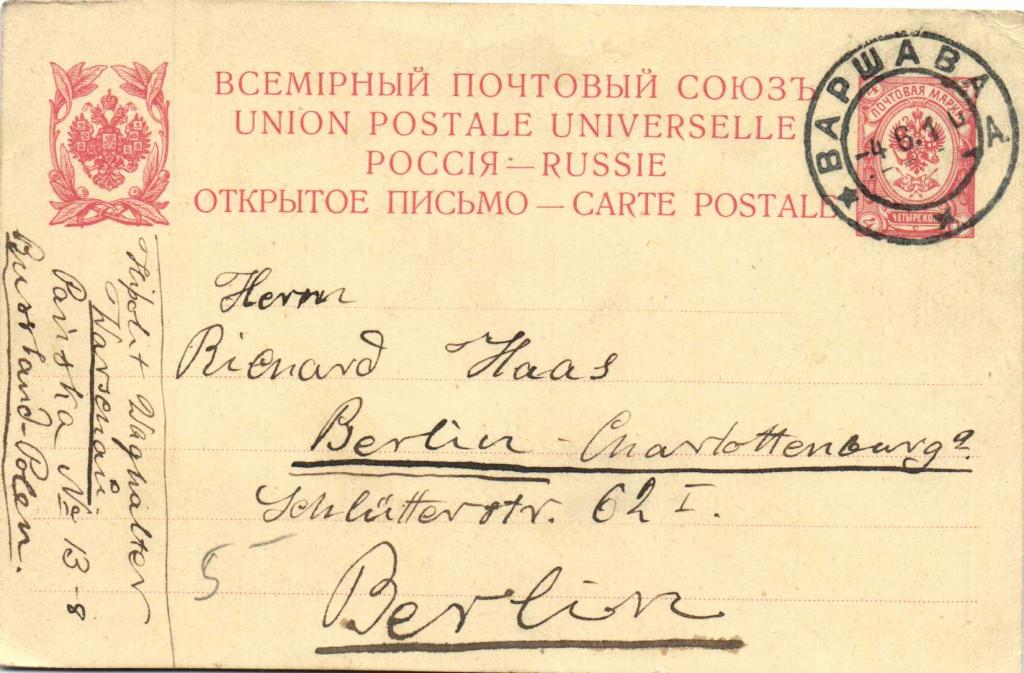 ВСЕМІРНЫЙ ПОЧТОВЫЙ СОЮЗЪ
UNION POSTALE UNIVERSELLE
РОССІЯ — RUSSIE
ОТКРЫТОЕ ПИСЬМО — CARTE POSTALE
ВАРШАВА
-4 6.1
ПОЧТОВАЯ МАРКА
ЧЕТЫРЕ КОП
Herrn
Richard Haas
Berlin - Charlottenburg
Schlütterstr. 62 I.
Berlin
5
Hipolit Waghalter
Warschau
Pańska № 13-8
Russland-Polen.